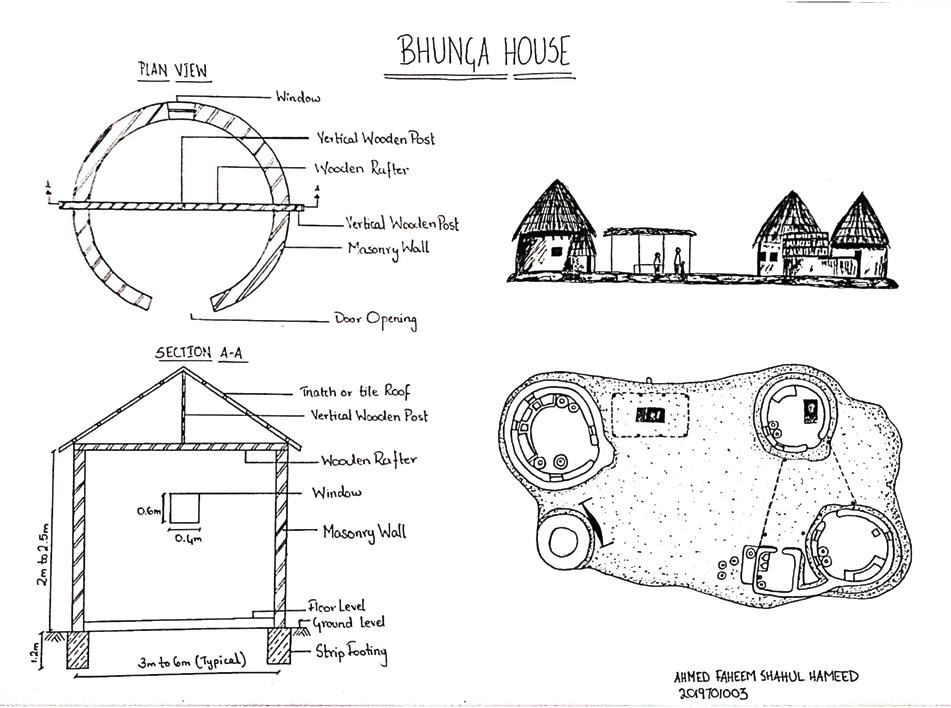 BHUNGA HOUSE
PLAN VIEW
Window
Vertical Wooden Post
Wooden Rafter
1
1
Vertical Wooden Post
Masonry Wall
Door Opening
SECTION A-A
Thatch or tile Roof
Vertical Wooden Post
Wooden Rafter
Window
0.6m
0.4m
Masonry Wall
2m to 2.5m
Floor Level
Ground Level
Strip Footing
1.2m
3m to 6m (Typical)
AHMED FAHEEM SHAHUL HAMEED
2019701003